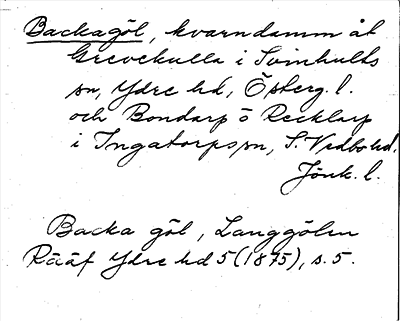 Backagöl, kvarndamm åt
Grevekulla i Svinhults
sn, Ydre hd, Österg. l.
och Bondarp o Recklarp
i Ingatorps sn, S. Vedbo hd.
Jönk. l.
Backa göl, Langgölen
Rääf Ydre hd 5 (1875), s. 5.